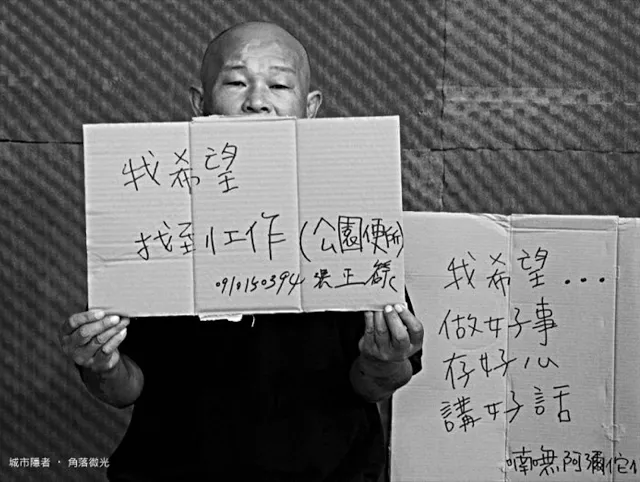 我希望
找到工作(公園便所)
0910150394 張正
我希望...
做好事
存好心
講好話
喃嘸阿彌佗
城市隱者 · 角落微光